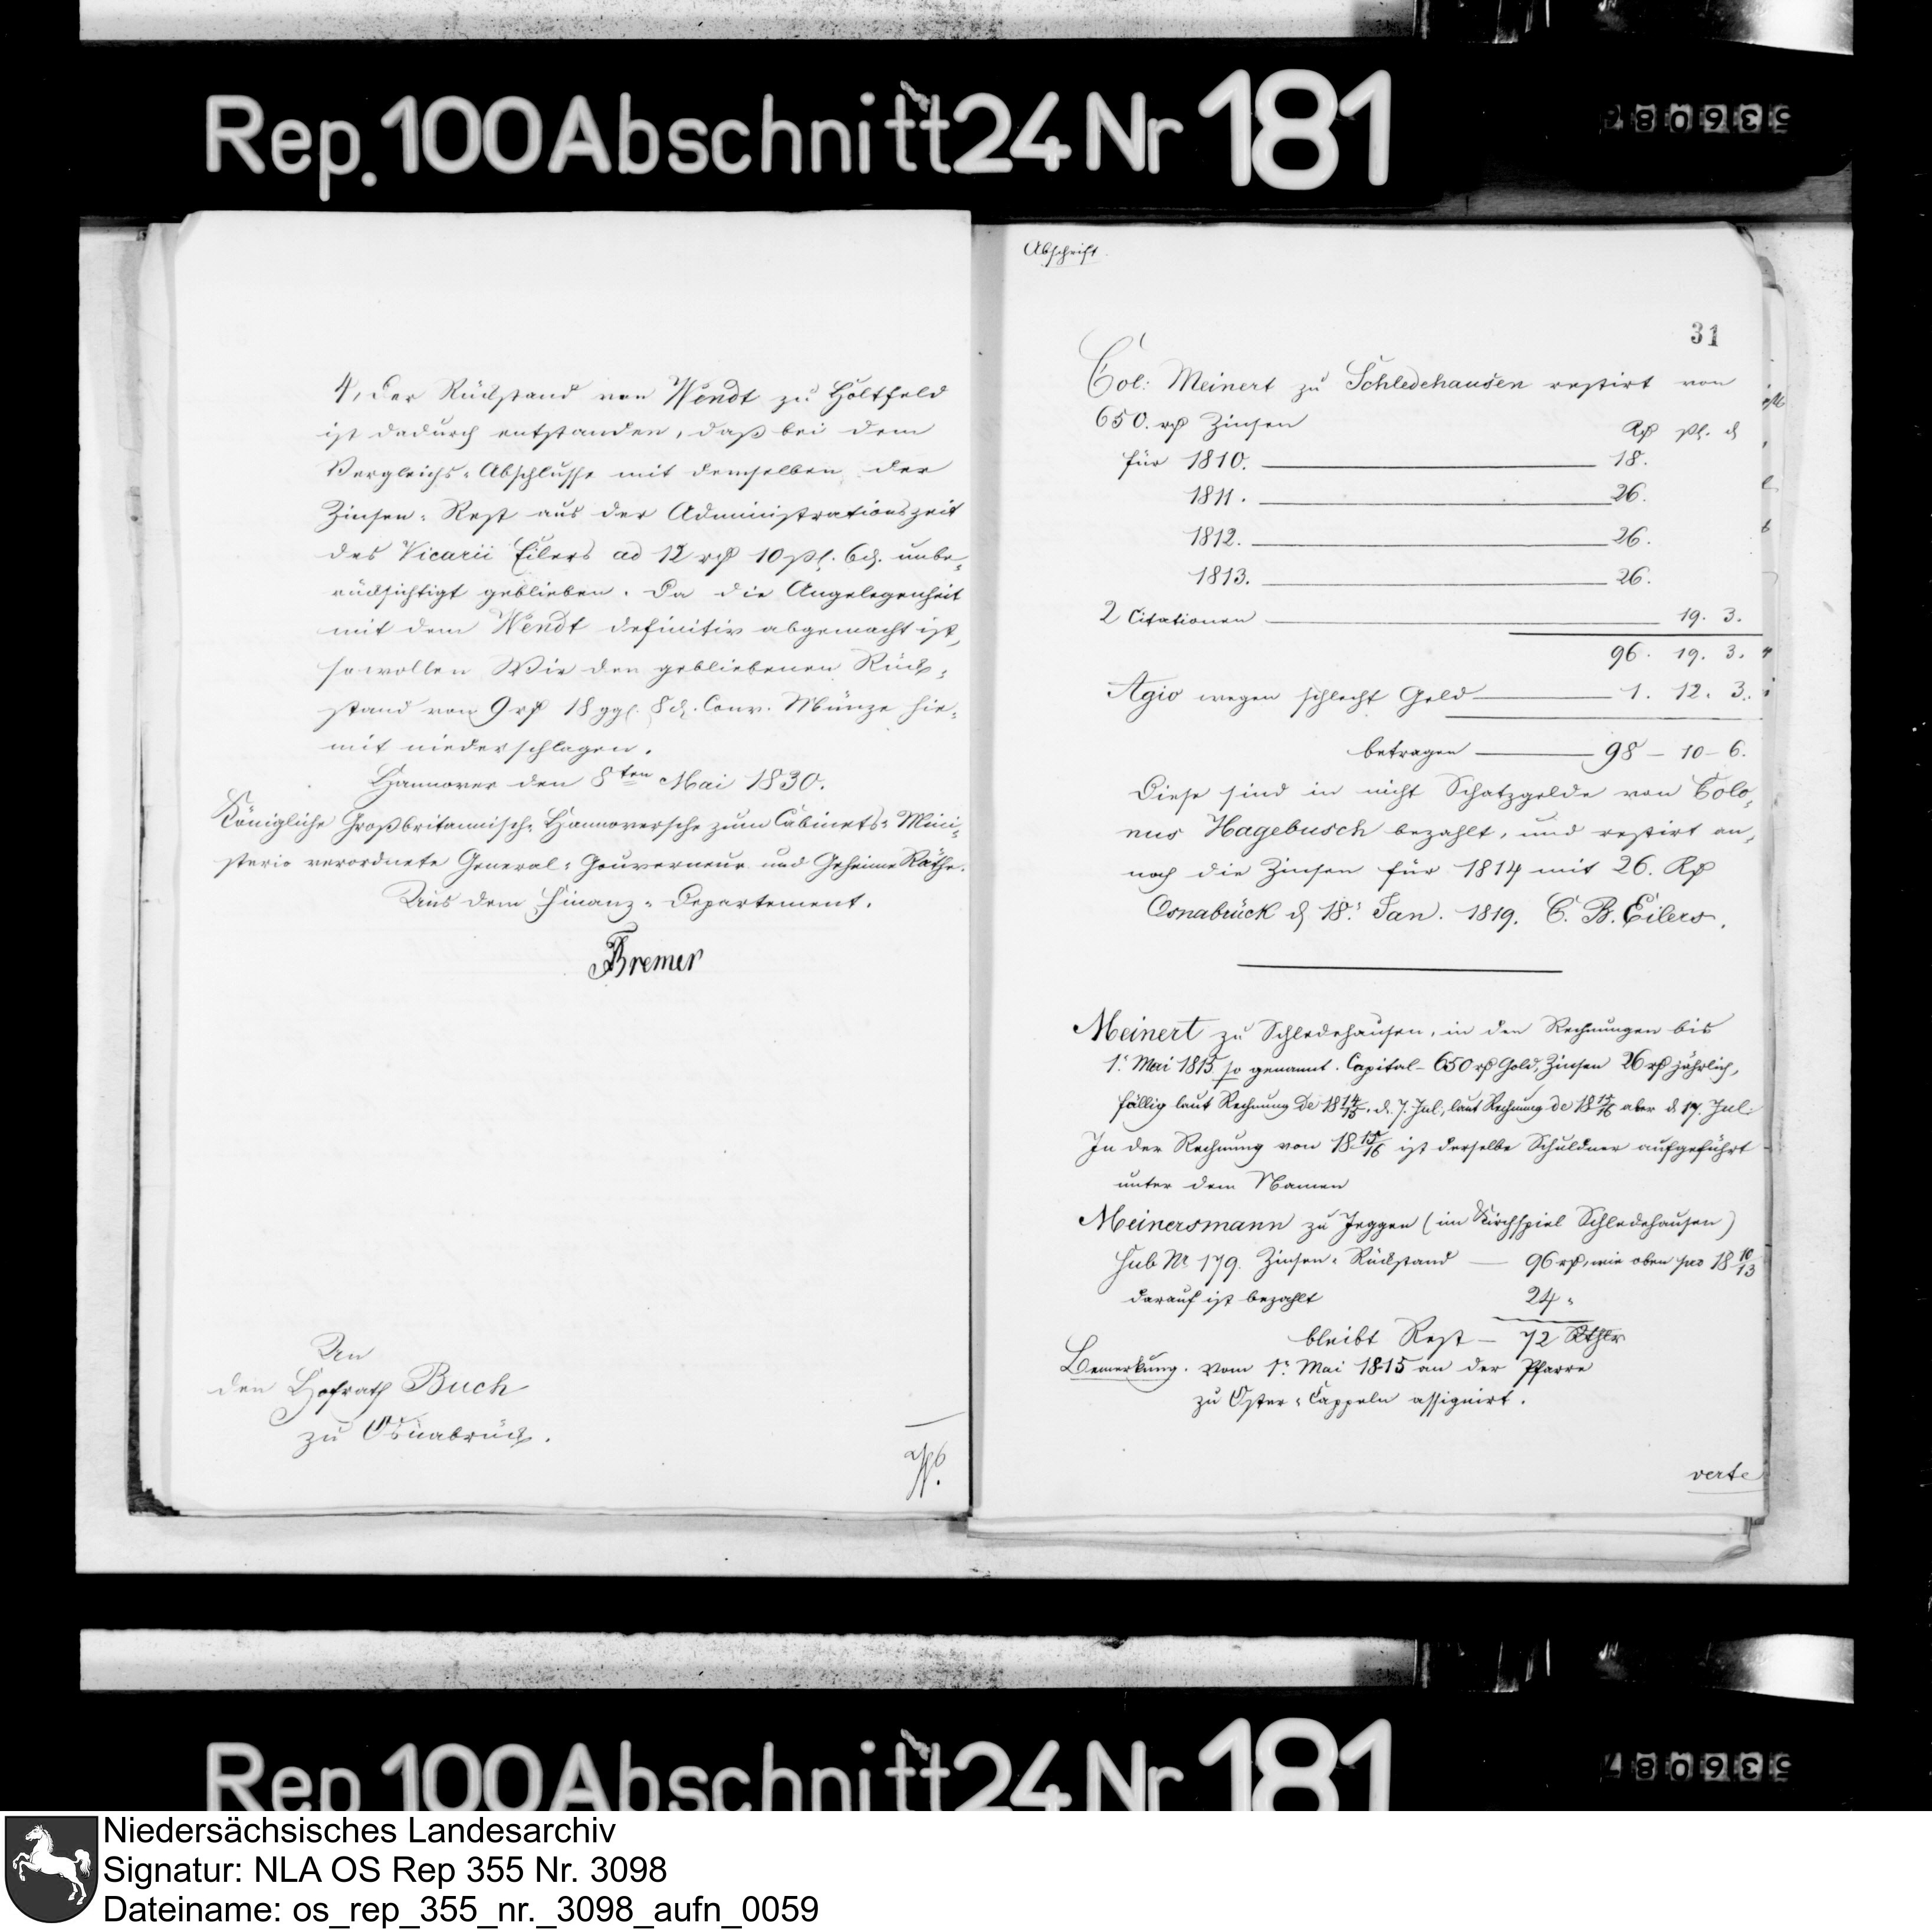 Rep. 100 Abschnitt 24 Nr 181
4, Der Rückstand von Wendt zu Holtfeld
ist dadurch entstanden, daß bei dem
Vergleichs-Abschlusse mit demselben der
Zinsen-Rest aus der Administrationszeit
des Vicarii Eilers ad 12 rß 10 ßl. 6 d. unbe-
rücksichtigt geblieben. Da die Angelegenheit
mit dem Wendt definitiv abgemacht ist,
so wollen Wir den gebliebenen Rück-
stand von 9 rß 18 ggl. 8 d. Conv. Münze hie-
mit niederschlagen.
Hannover den 8ten Mai 1830.
Königliche Großbritannisch-Hannoversche zum Cabinets-Mini-
sterio verordnete General-Gouverneur und Geheime Räthe.
Aus dem Finanz-Departement.
Bremer
An
den Hofrath Buch
zu Osnabrück.
Abschrift.
31
Col: Meinert zu Schledehausen restirt von
650. rß Zinsen
Rß ßl. d
für 1810. 18.
1811. 26.
1812. 26.
1813. 26.
2 Citationen 19. 3.
96. 19. 3.
Agio wegen schlecht Geld 1. 12. 3.
betragen 98 - 10 - 6.
Diese sind in nicht Schatzgelde von Colo-
nus Hagebusch bezahlt, und restirt an-
noch die Zinsen für 1814 mit 26. Rß
Osnabrück d 18: Jan. 1819. C. B. Eilers.
Meinert zu Schledehausen, in den Rechnungen bis
1: Mai 1815 so genannt. Capital - 650 rß Gold, Zinsen 26 rß jährlich,
fällig laut Rechnung de 18 14/15. d. 7. Jul., laut Rechnung de 18 15/16 aber d 17. Jul:
In der Rechnung von 18 15/16 ist derselbe Schuldner aufgeführt
unter dem Namen
Meinersmann zu Jeggen (im Kirchspiel Schledehausen)
sub Nr 179. Zinsen-Rückstand — 96 rß, wie oben pro 18 10/13
darauf ist bezahlt 24 "
bleibt Rest — 72 Rthlr
Bemerkung. Vom 1: Mai 1815 an der Pfarre
zu Oster-Cappeln assignirt.
verte
Rep. 100 Abschnitt 24 Nr 181
Niedersächsisches Landesarchiv
Signatur: NLA OS Rep 355 Nr. 3098
Dateiname: os_rep_355_nr._3098_aufn_0059